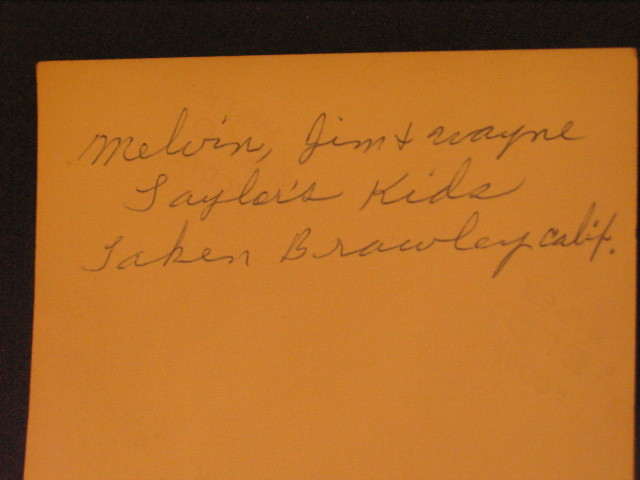 Melvin, Jim + Wayne
Taylor's Kids
Taken Brawley Calif.